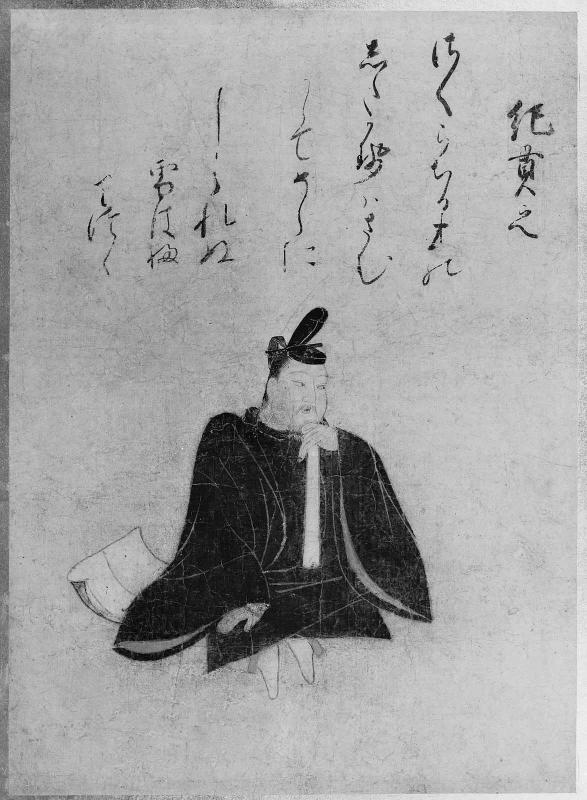 紀貫之
さくらちる木の
した可勢ハさむ
からてそらに
しられぬ
雪そ婦
りける